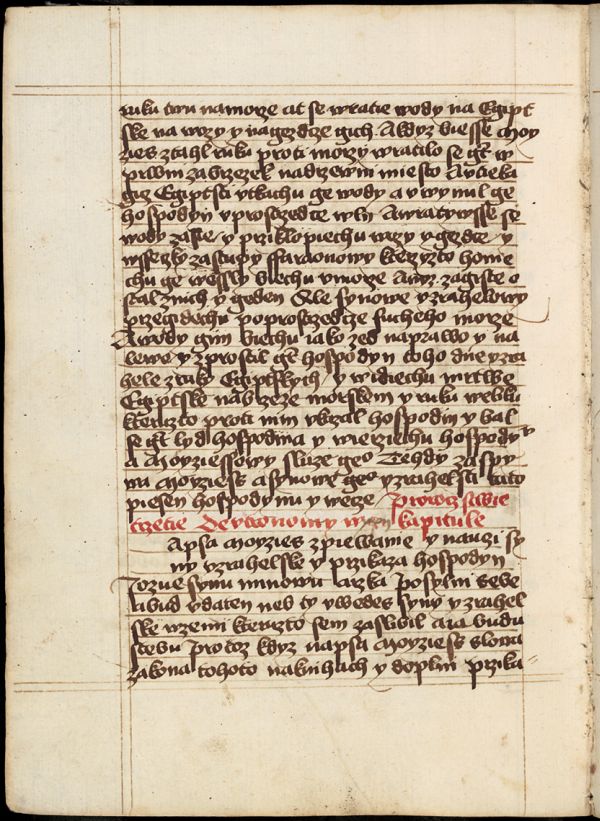 ruku twu na morze at se wratie wody na Egipt
ske na wozy y na gezdze gich A kdyz biesse Moy
zies ztahl ruku proti morzy wratilo se gest w
prwim zabrzezek na drzewni miesto A vtieka
gic Egiptsti vtkachu ge wody a vwynul ge
hospodyn v prostrzedce wln A wratywsse se
wody zasie y prziklopiechu wozy y gezdce y
wsseczky zastupy ffaraonowy kterzyzto honie
chu ge wessly biechu v morze Any zagiste o
stal z nich y geden Ale synowe yzrahelowy
przegidechu po prostrzedcze sucheho morze
A wody gim biechu iako zed na prawo y na
lewo y zprostil gest hospodyn toho dne yzra
hele z ruky Egiptskych y widiechu mrtwe
Egiptske na brzeze morskem y ruku weliku
kteruzto proti nim vkazal hospodin y bal
se gest lyd hospodina y wierziechu hospodyny
a Moyziessowy sluze geo Tehdy zaspy
wa Moyziess a synowe geo yzrahelsti tuto
piesen hospodynu y wecze Proroczstwie
trzetie Deytronomy w kapitule
Apsa Moyzies zpiewanie y nauczi sy
ny yzrahelske y przikaza hospodyn
Jozue synu Nunowu arzka Posylni sebe
a bud vdaten neb ty vwedes syny yzrahel
ske w zemi kteruzto sem zaslibil a ia budu
s tebu Protoz kdyz napsa Moyziess slowa
zakona tohoto na knihach y doplni przika